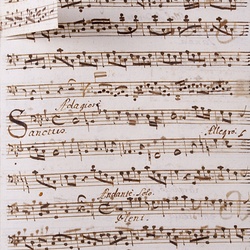 Adagiosè
Sanctus
Allegro
Andante Solo
Pleni.